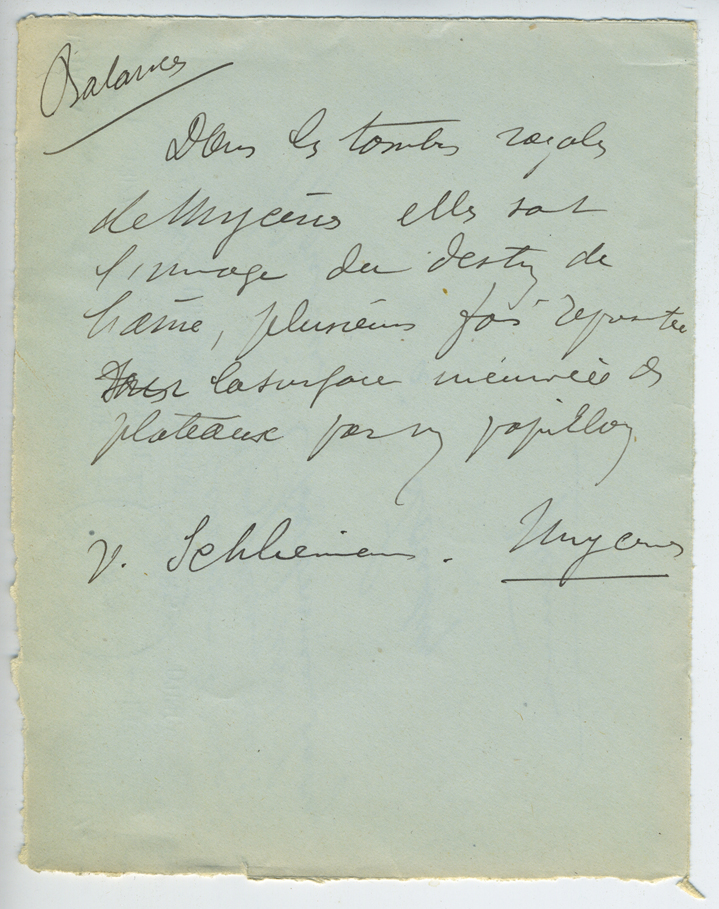 Balances
Dans les tombes royales
de Mycènes elles sont
l'image du destin de
l'âme, plusieurs fois représentée
sur la surface incurvée des
plateaux par un papillon
v. Schliemann. Mycènes